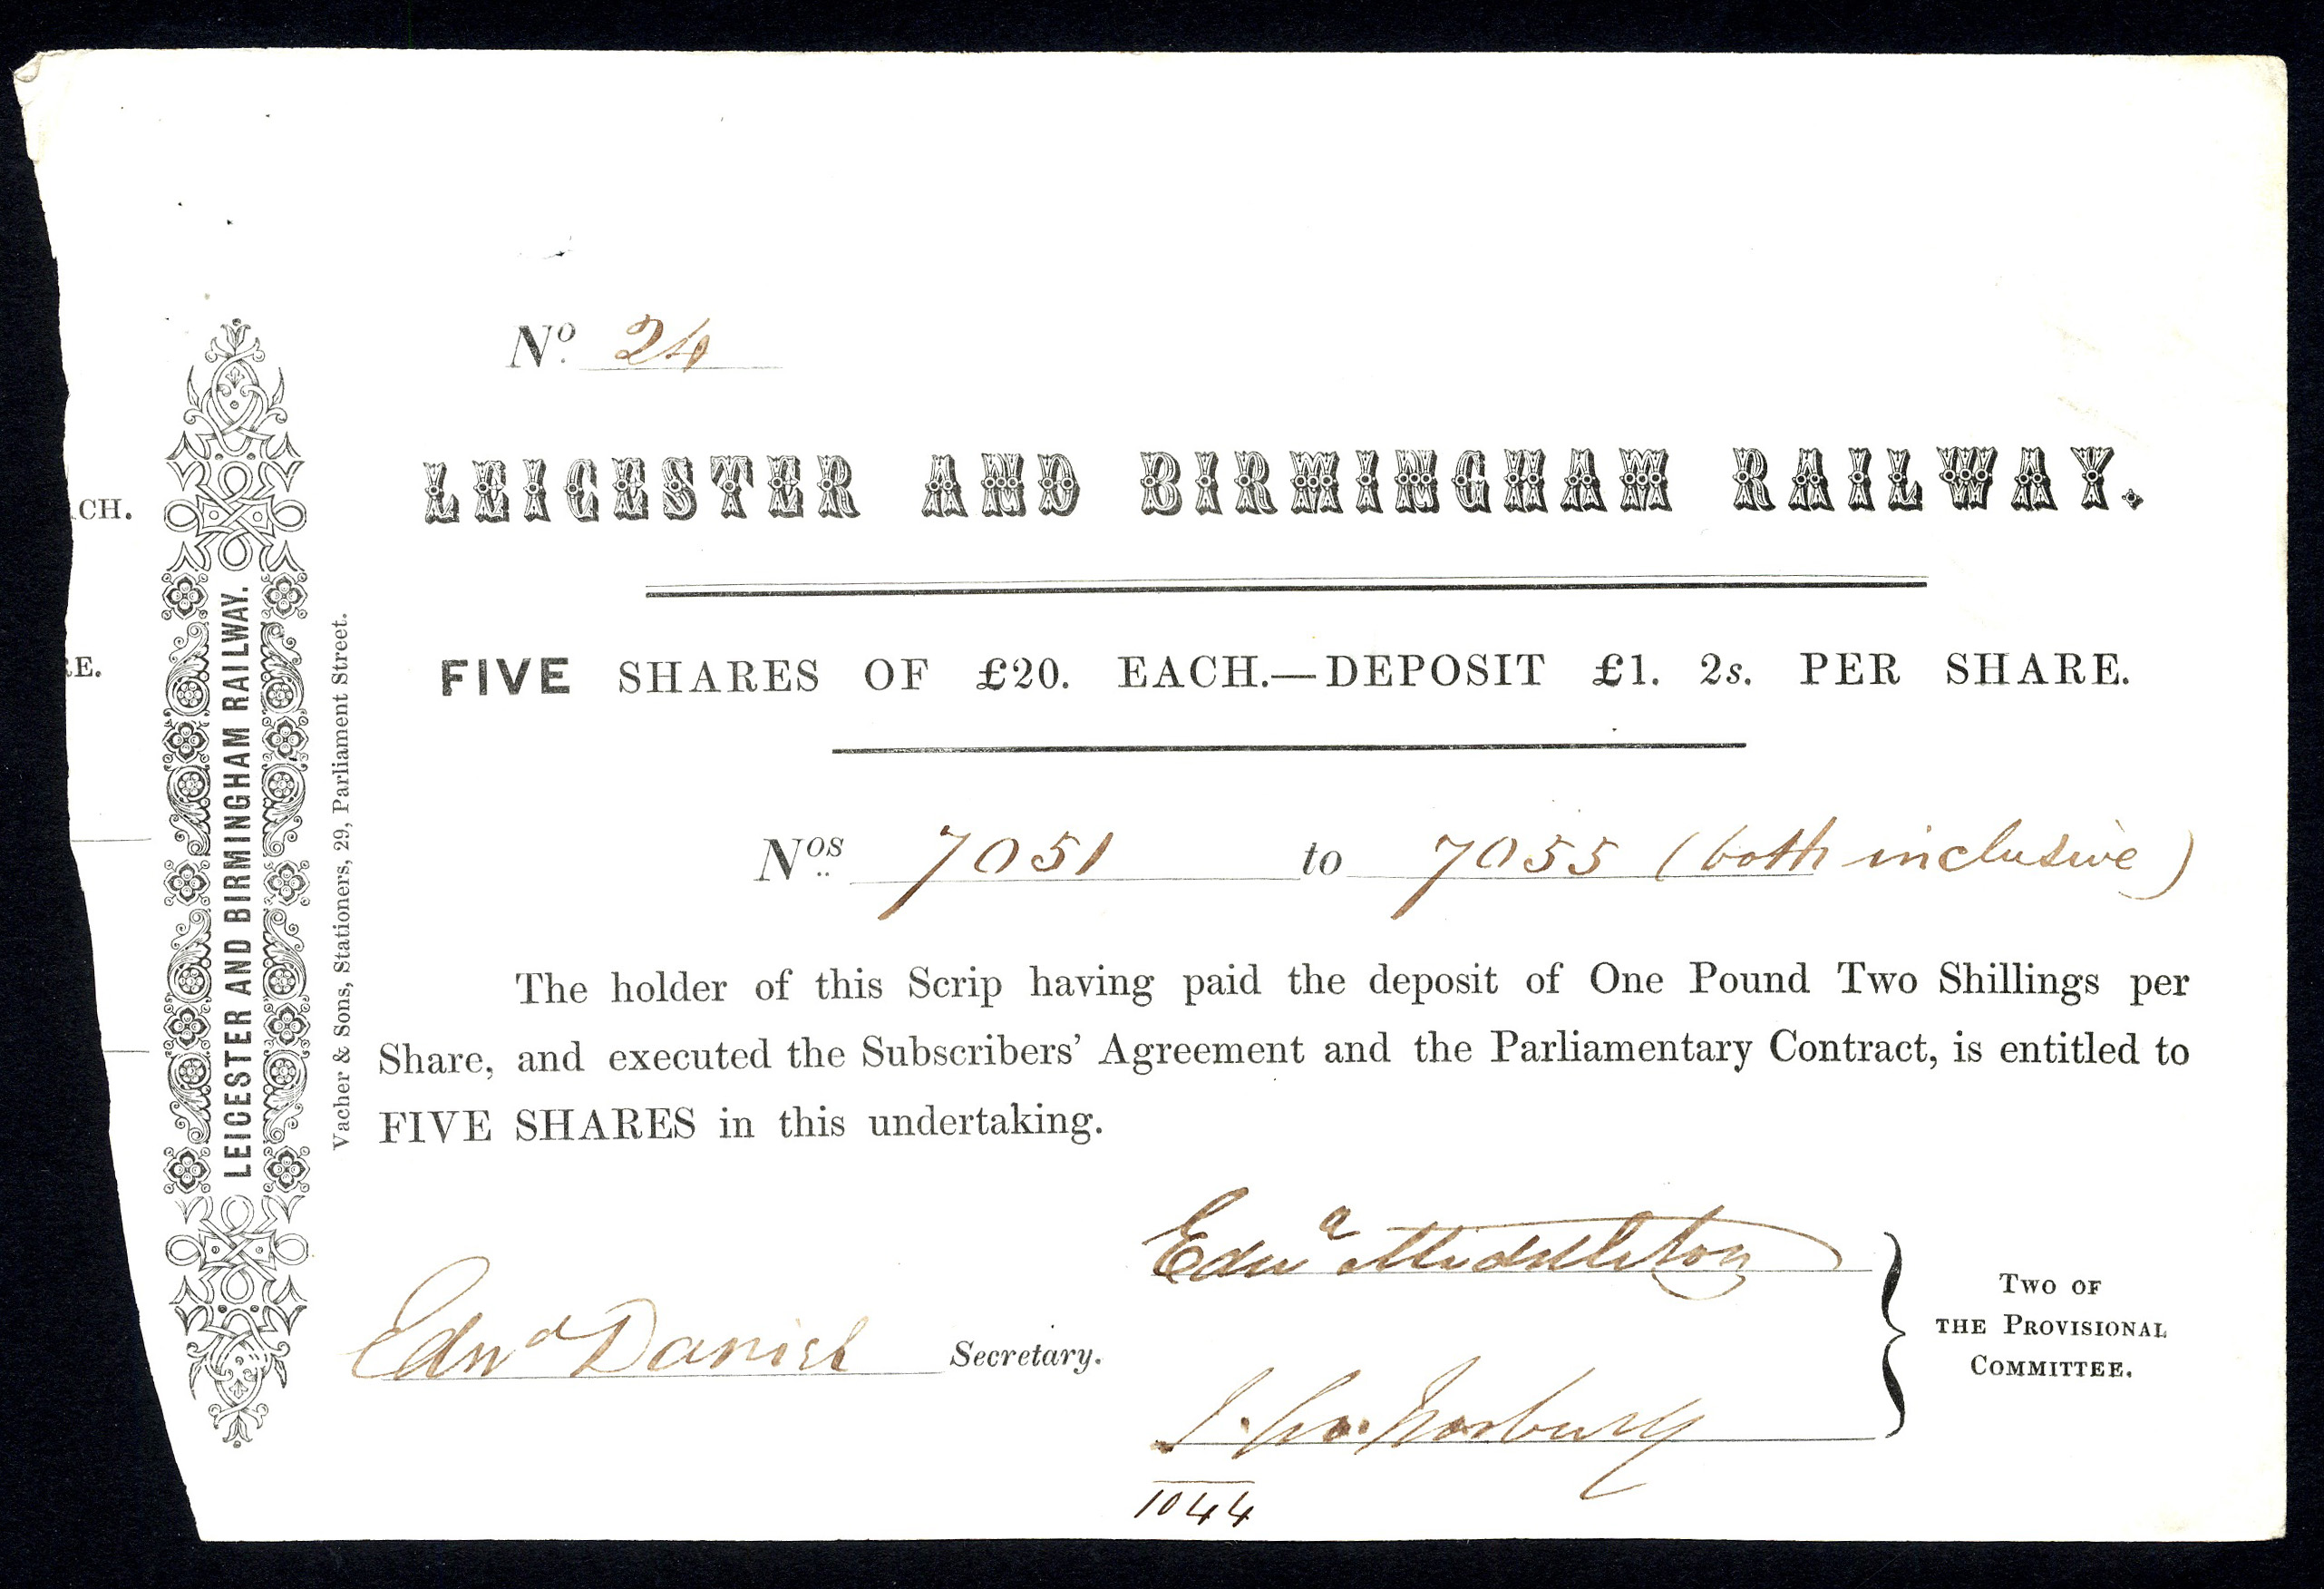 No. 24
LEICESTER AND BIRMINGHAM RAILWAY.
FIVE SHARES OF £20. EACH.—DEPOSIT £1. 2s. PER SHARE.
Nos 7051 to 7055 (both inclusive)
The holder of this Scrip having paid the deposit of One Pound Two Shillings per
Share, and executed the Subscribers' Agreement and the Parliamentary Contract, is entitled to
FIVE SHARES in this undertaking.
Edwd Middleton
Edwd Daniel Secretary.
TWO OF
THE PROVISIONAL
COMMITTEE.
1044
CH.
RE.
LEICESTER AND BIRMINGHAM RAILWAY.
Vacher & Sons, Stationers, 29, Parliament Street.